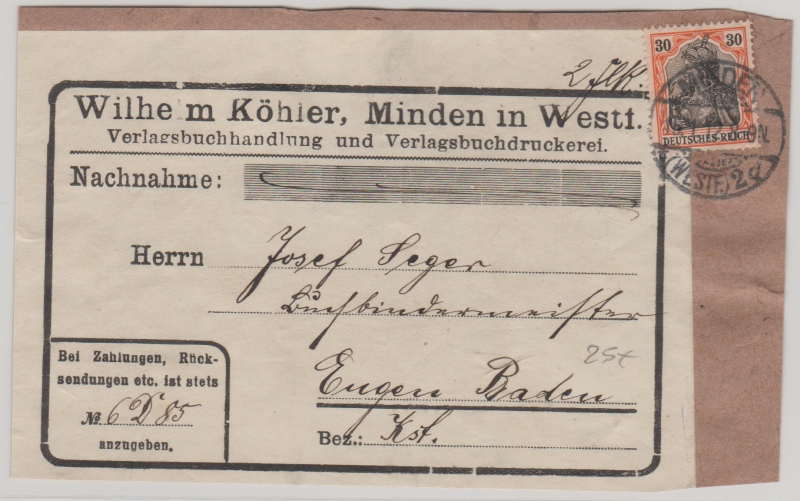 2 
30 30
DEUTSCHES REICH
MINDEN
(WESTF.) 2d
Wilhe m Köhler, Minden in Westf.
Verlagsbuchhandlung und Verlagsbuchdruckerei.
Nachnahme:
Herrn Josef Seger
Buchbindermeister
25
Eugen Baden
Bez.: Kst.
Bei Zahlungen, Rück-
sendungen etc. ist stets
№ 6 D 85
anzugeben.